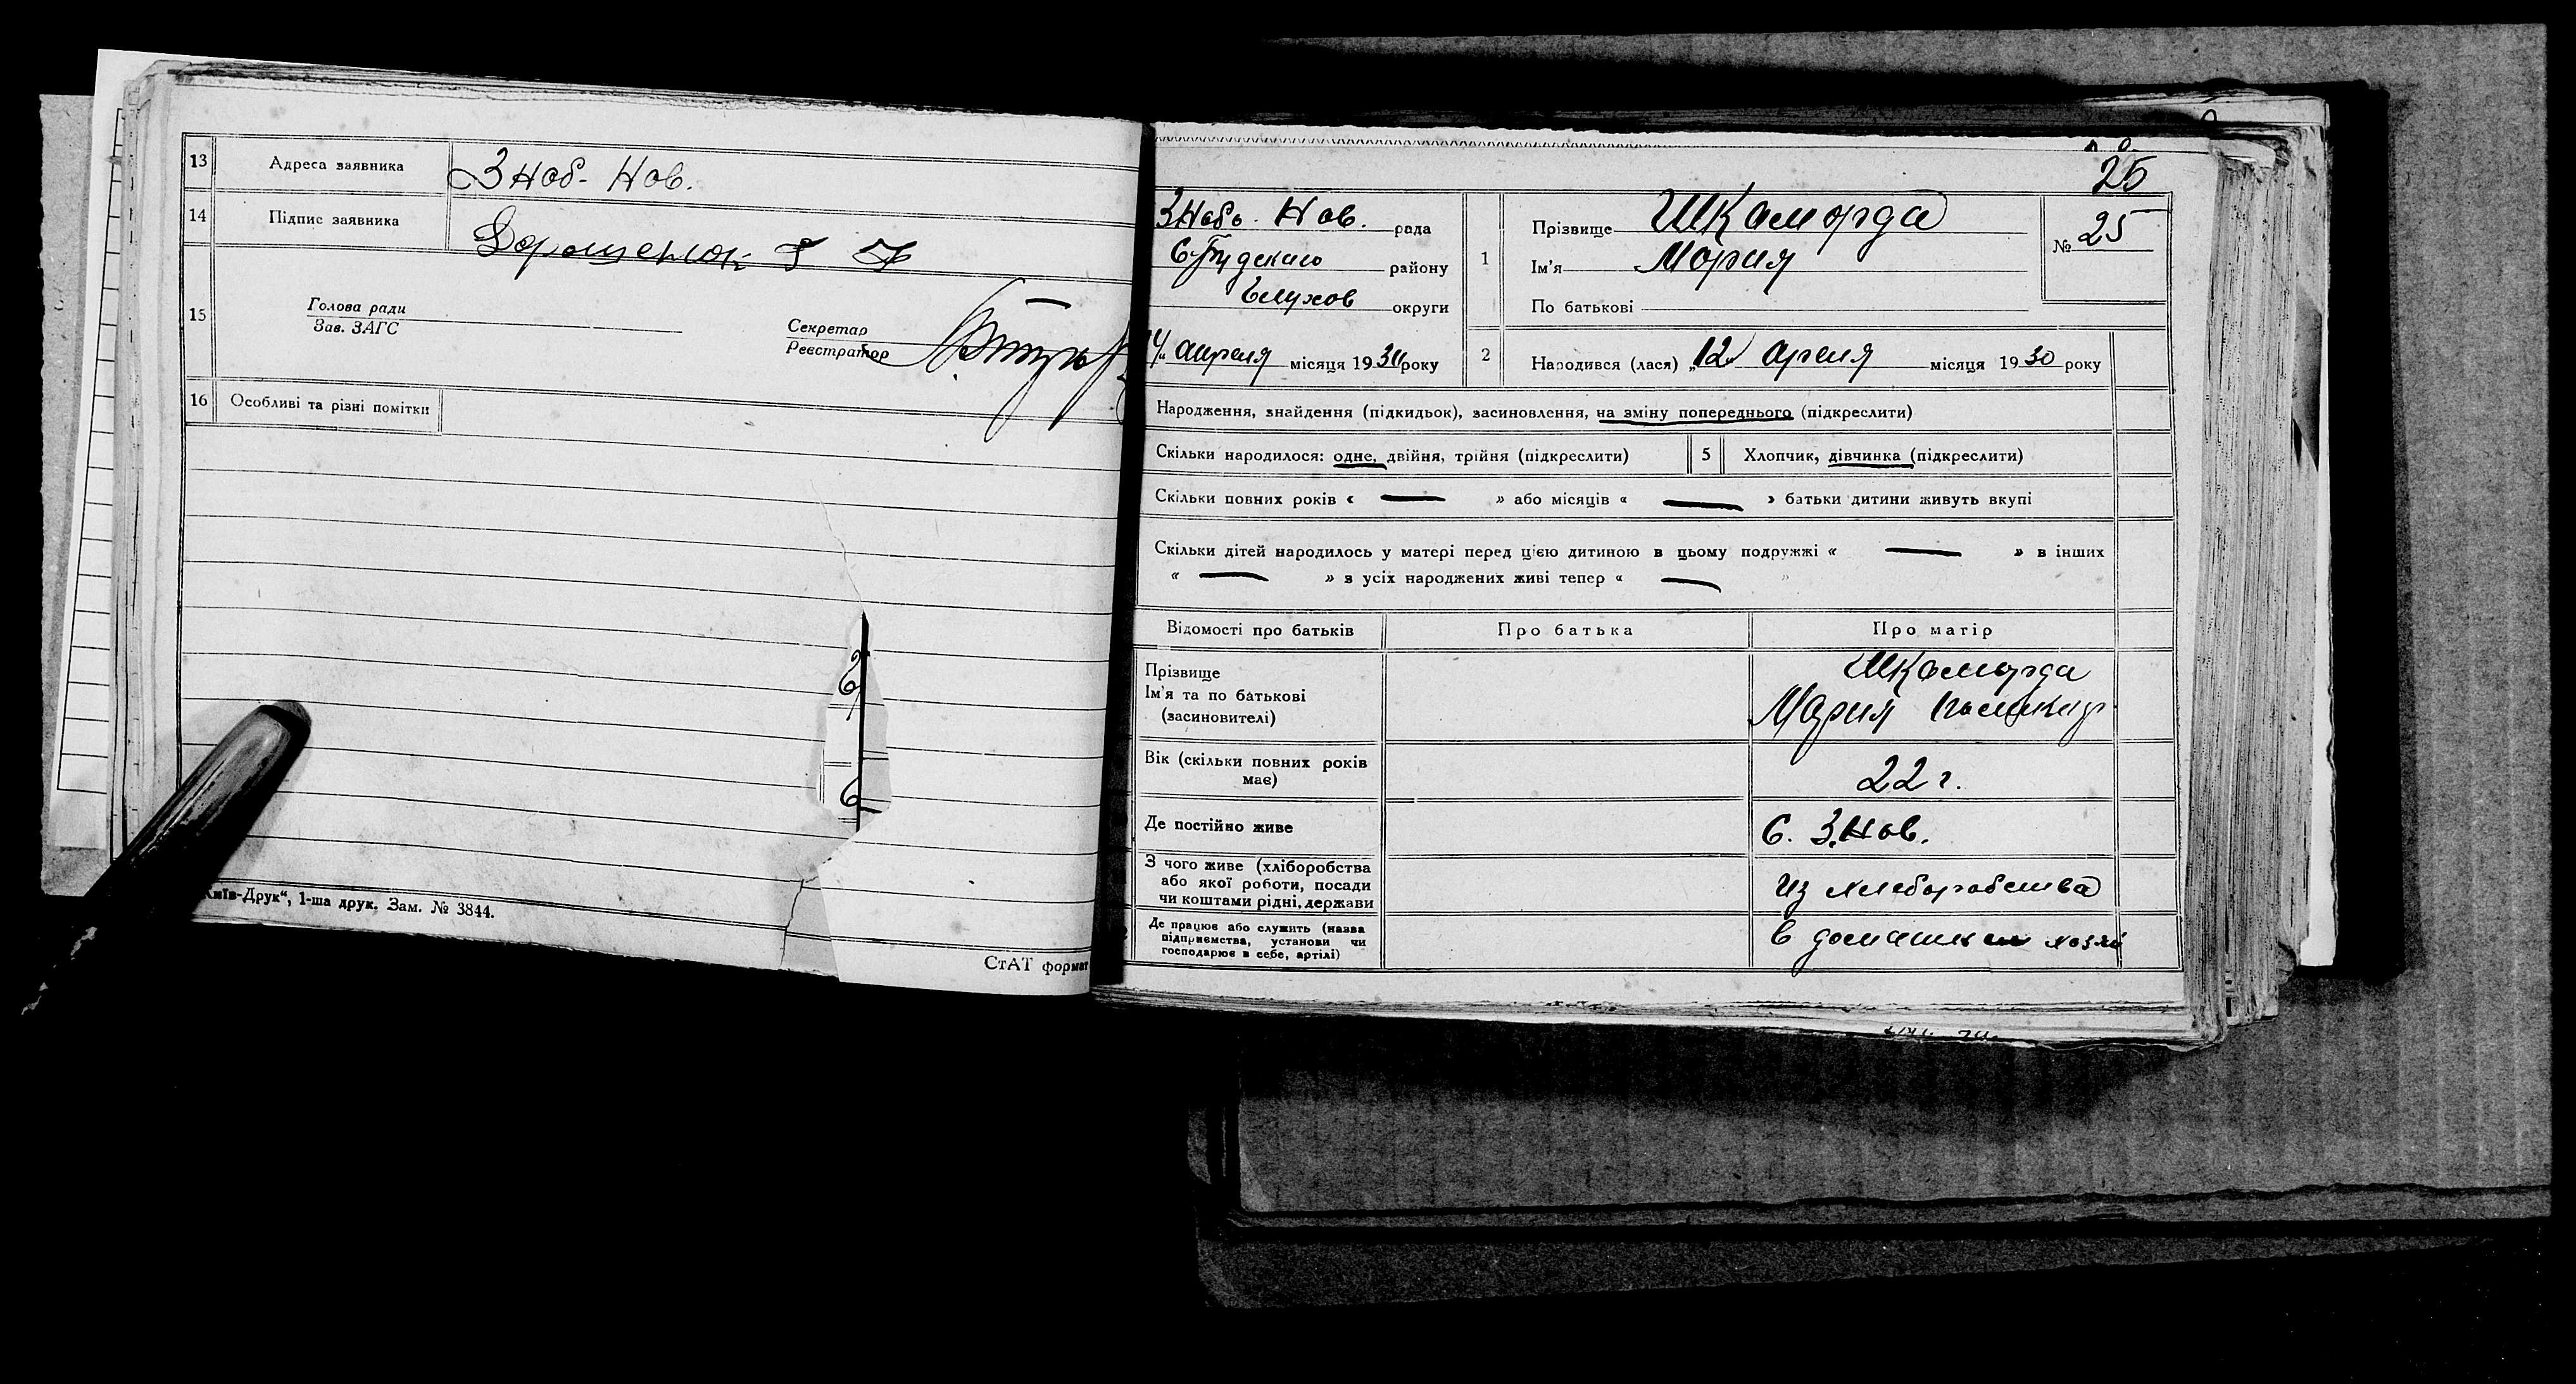 13 Адреса заявника Зноб- Нов.
14 Підпис заявника Дорощенок
15 Голова ради
Зав. ЗАГС
Секретар
Реєстратор
16 Особливі та різні помітки
Київ-Друк“, 1-ша друк. Зам. № 3844.
СтАТ формат
25
Знобо- Нов. рада
С Будского району
Глухов округи
14 апреля місяця 1930 року
1 Прізвище Шкаморда
Ім'я Мария
По батькові
№ 25
2 Народився (лася) „12„ апреля місяця 1930 року
Народження, знайдення (підкидьок), засиновлення, на зміну попереднього (підкреслити)
Скільки народилося: одне, двійня, трійня (підкреслити) 5 Хлопчик, дівчинка (підкреслити)
Скільки повних років « — » або місяців « — » батьки дитини живуть вкупі
Скільки дітей народилось у матері перед цією дитиною в цьому подружжі « — » в інших
« — » з усіх народжених живі тепер « — »
Відомості про батьків Про батька Про матір
Прізвище
Ім'я та по батькові
(засиновителі)
Шкаморда
Мария
Вік (скільки повних років
має)
22 г.
Де постійно живе С. З.Нов.
З чого живе (хліборобства
або якої роботи, посади
чи коштами рідні, держави
Из хлеборобства
Де працює або служить (назва
підприємства, установи чи
господарює в себе, артілі)
в домашнем хозяй